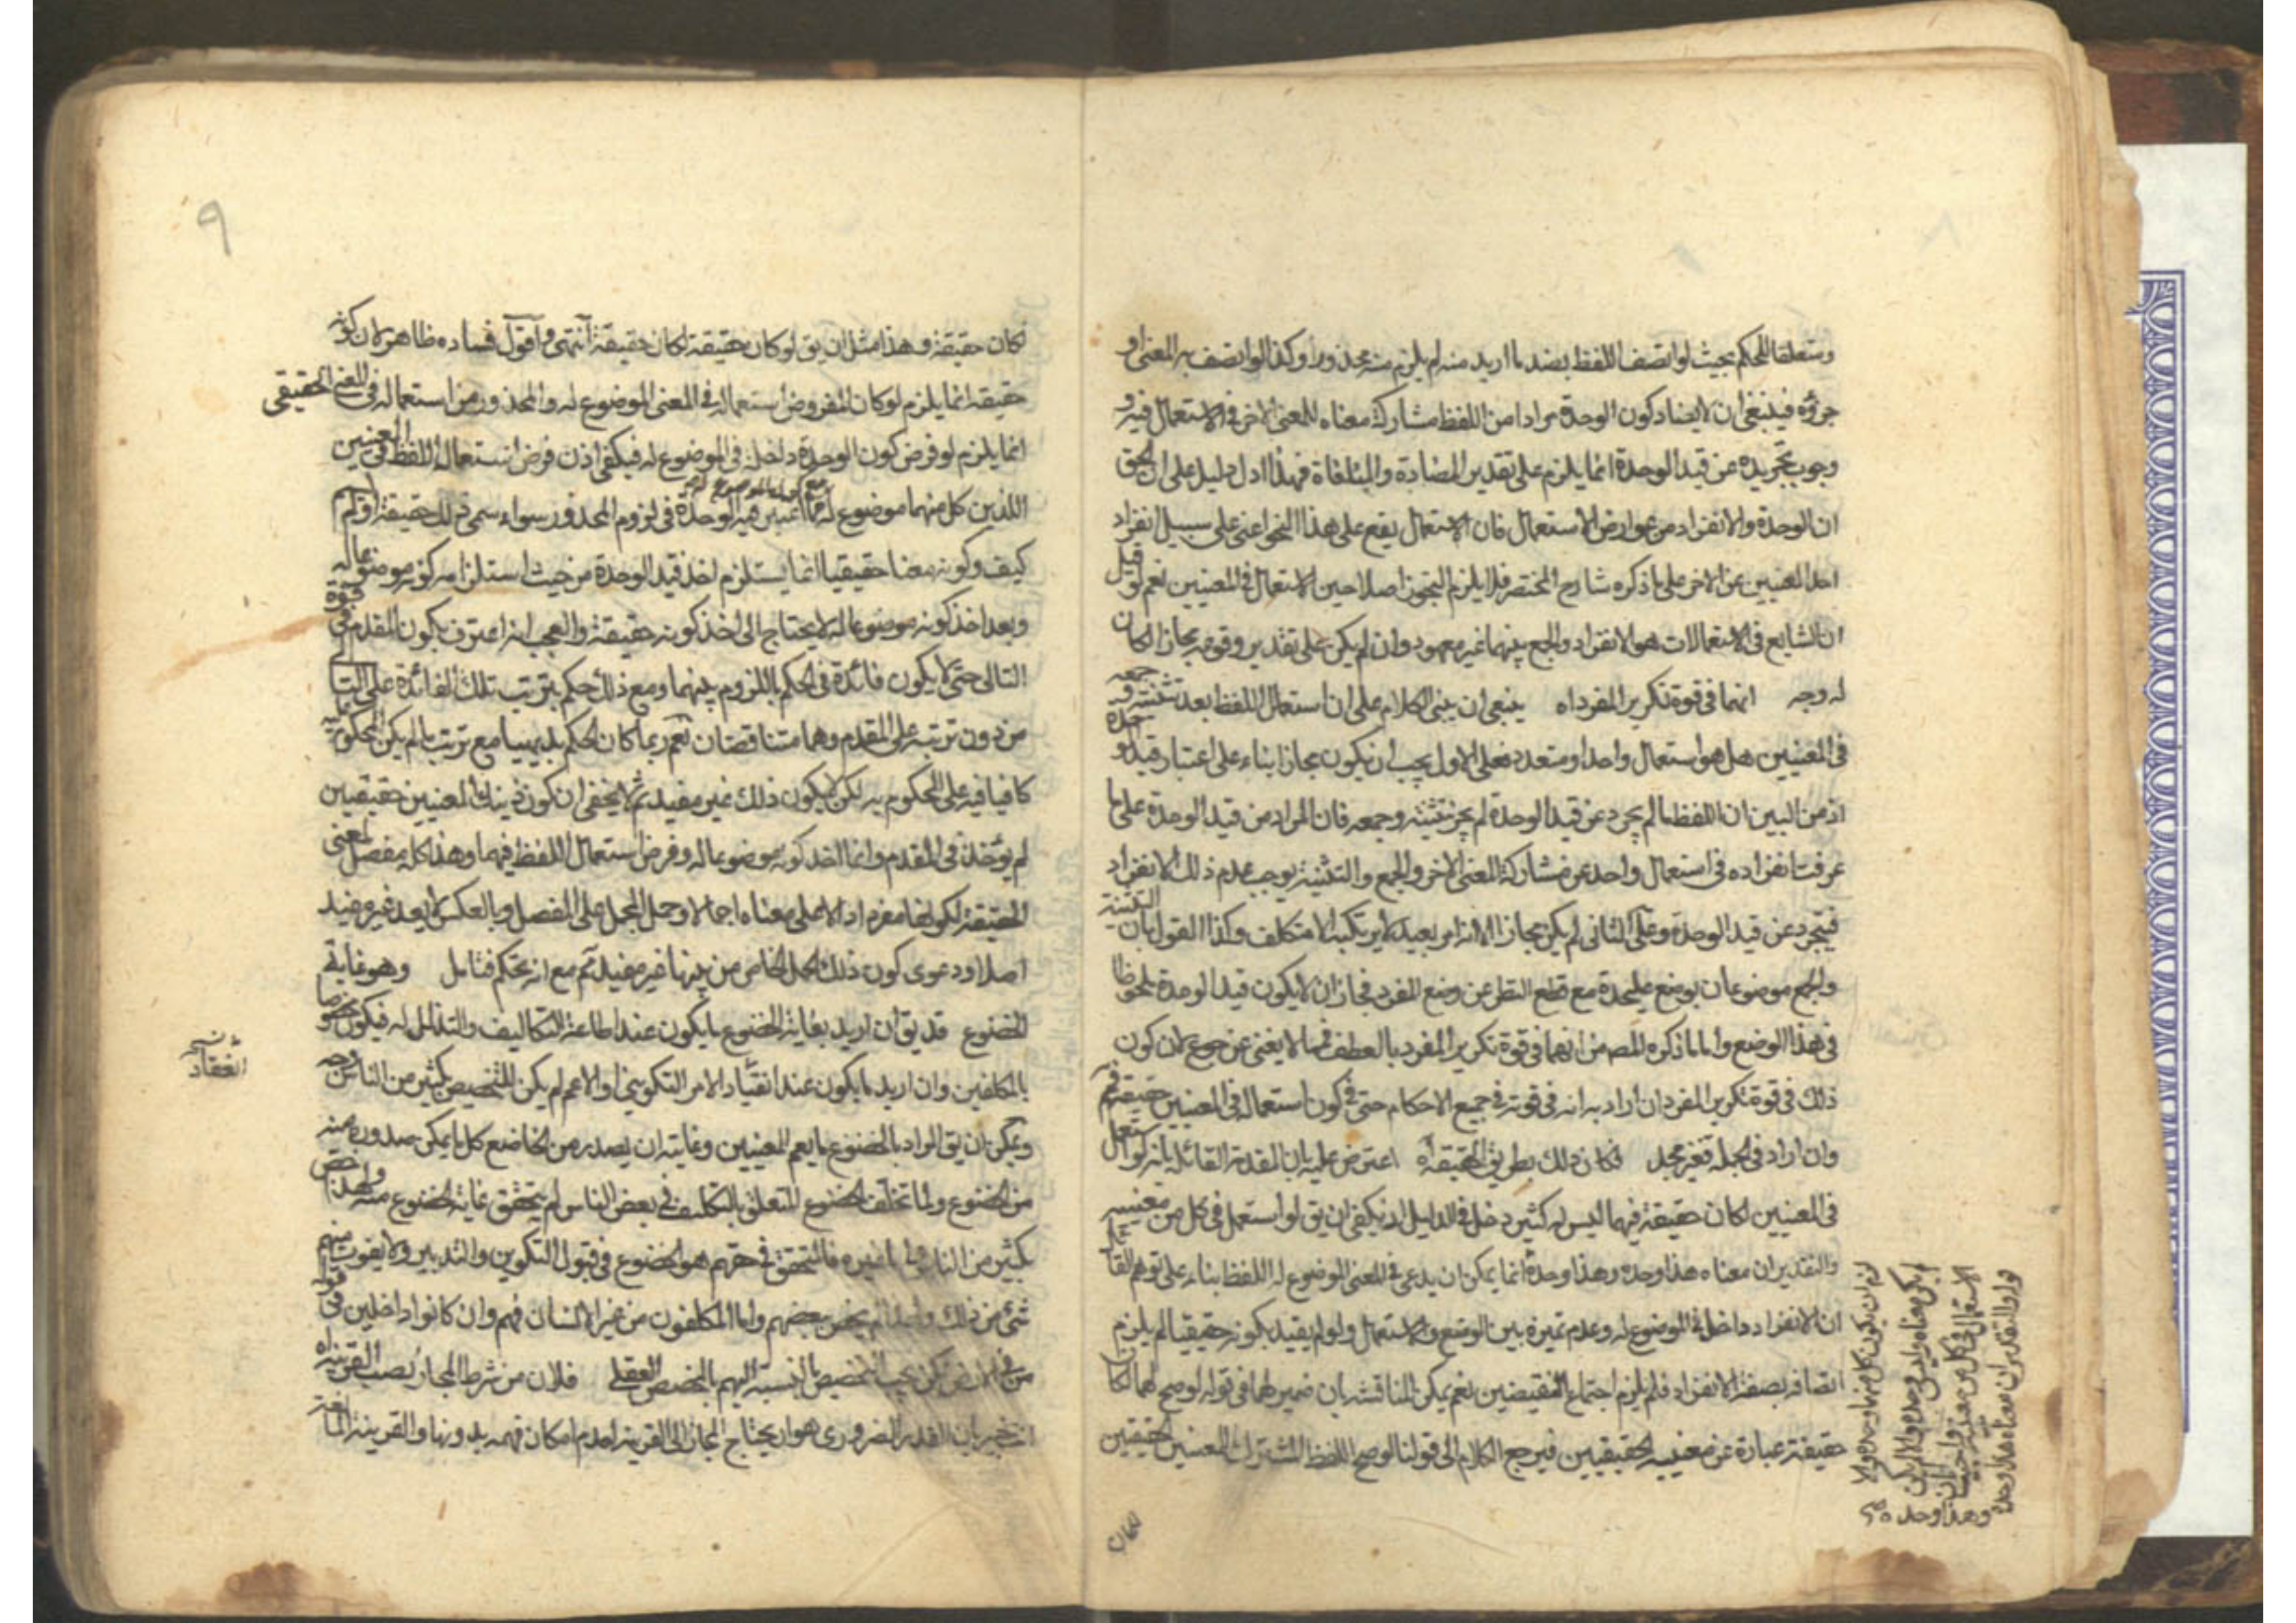 ومتعلقا للحكم بحيث لو اتصف اللفظ بضد ما اريد منه لم يلزم منه محذور او كذا لو اتصف به المعنى او
جزؤه فينبغي ان لا يضاد كون الوحدة مرادا من اللفظ مشاركة معناه للمعنى الاخر في الاستعمال فيه و
وجوب تجريده عن قيد الوحدة انما يلزم على تقدير المضادة والمنافاة فهذا ادل دليل على ان الحق
ان الوحدة والانفراد من عوارض الاستعمال فان الاستعمال يقع على هذا النحو اعني على سبيل انفراد
احد المعنيين عن الاخر على ما ذكره شارح المختصر فلا يلزم التجوز اصلا حين الاستعمال في المعنيين نعم لو قيل
ان الشايع في الاستعمالات هو الانفراد والجمع بينهما غير معهود وان لم يكن على تقدير وقوعه مجازا لكان
له وجه انهما في قوة تكرير المفرد اه ينبغي ان يبنى الكلام على ان استعمال اللفظ بعد تثنيته و جمعه
في المعنيين هل هو استعمال واحد او متعدد فعلى الاول يجب ان يكون مجازا بناء على اعتبار قيد الوحدة
اذ من البين ان اللفظ ما لم يجرد عن قيد الوحدة لم يجز تثنيته وجمعه فان المراد من قيد الوحدة على ما
عرفت انفراده في استعمال واحد عن مشاركة المعنى الاخر والجمع والتثنية يوجب عدم ذلك الانفراد
فيتجرد عن قيد الوحدة وعلى الثاني لم يكن مجازا الا انه امر بعيد لا يرتكبه الا متكلف وكذا القول بان التثنية
والجمع موضوعان بوضع عليحدة مع قطع النظر عن وضع المفرد فجاز ان لا يكون قيد الوحدة ملحوظا
في هذا الوضع واما ما ذكره المص من انهما في قوة تكرير المفرد بالعطف فمما لا يغني عن جوع لان كون
ذلك في قوة تكرير المفرد ان اراد به انه في قوته في جميع الاحكام حتى في كون استعماله في المعنيين حقيقة فمم
وان اراد في الجملة فغير مجد فكان ذلك بطريق الحقيقة اه اعترض عليه بان المقدمة القائلة بانه لو استعمل
في المعنيين لكان حقيقة فيهما ليس له كثير دخل في الدليل اذ يكفي ان يق لو استعمل في كل من معنييه
والتقدير ان معناه هذا وحده وهذا وحده انما يمكن ان يدعى في المعنى الموضوع له اللفظ بناء على توهم القائل
ان الانفراد داخل في الموضوع له وعدم تميزه بين الوضع والاستعمال ولو لم يقيد بكونه حقيقيا لم يلزم
اتصافه بصفة الانفراد فلم يلزم اجتماع النقيضين نعم يمكن المناقشة بان ضمير لهما في قوله لو صح لهما لكان
حقيقة عبارة عن معنييه الحقيقيين فيرجع الكلام الى قولنا لو صح اللفظ المشترك للمعنيين الحقيقيين
قوله والتقدير ان معناه هذا وحده
وهذا وحده
لكان
٩
لكان حقيقة وهذا مثل ان يق لو كان حقيقة لكان حقيقة انتهى واقول فساده ظاهر لان كونه
حقيقة انما يلزم لو كان المفروض استعماله في المعنى الموضوع له والمحذور من استعماله في المعنى الحقيقي
انما يلزم لو فرض كون الوحدة داخلة في الموضوع له فيكفي اذن فرض استعمال اللفظ في المعنيين
اللذين كل منهما موضوع له مما اعتبر فيه الوحدة في لزوم المحذور سواء سمي ذلك حقيقة او لم
كيف وكونه معنا حقيقيا انما يستلزم اخذ قيد الوحدة من حيث استلزامه كونه موضوعا له
وبعد اخذ كونه موضوعا له لا يحتاج الى اخذ كونه حقيقة والعجب انه اعترف بكون المقدم في قوة
التالي حتى لا يكون فائدة في الحكم باللزوم بينهما ومع ذلك حكم بترتب تلك الفائدة على التالي
من دون ترتبه على المقدم وهما متناقضان نعم ربما كان الحكم بديهيا مع ترتب ما لم يكن المحكوم به
كافيا فيه على المحكوم به لكن لا يكون ذلك غير مفيد ثم لا يخفى ان كون ذينك المعنيين حقيقيين
لم يؤخذ في المقدم وانما اخذ كونه موضوعا له وفرض استعمال اللفظ فيهما وهذا كله مفصل لمعنى
الحقيقة لكونها مفردا دالا على معناه اجمالا وحمل المجمل على المفصل وبالعكس لا يعد غير مفيد
اصلا ودعوى كون ذلك الحمل الخاص من بينها غير مفيد ثم مع انه تحكم فتامل وهو غاية
الخضوع قد يق ان اريد بغاية الخضوع ما يكون عند اطاعة التكاليف والتذلل له فيكون مخصوصا
بالمكلفين وان اريد ما يكون عند انقياد الامر التكويني او الاعم لم يكن للتخصيص بكثير من الناس وجه
ويمكن ان يق المراد بالخضوع ما يعم المعنيين وغايته ان يصدر من الخاضع كل ما يمكن صدوره منه
من الخضوع ولما تخلف الخضوع المتعلق بالتكليف في بعض الناس لم يتحقق غاية الخضوع منه ولهذا خص
بكثير من الناس واما غيره فالمتحقق في حقهم هو الخضوع في قبول التكوين والتدبير ولا يفوت منهم
شئ من ذلك ولهذا لم يخص ببعضهم واما المكلفون من غير الانسان فهم وان كانوا داخلين في قوله
من في الارض لكن يجب التخصيص بالنسبة اليهم بالمخصص العقلي فلان من شرط المجاز نصب القرينة اه
القدر الضروري هو ان يحتاج المجاز الى القرينة لعدم امكان فهمه بدونها والقرينة المانعة